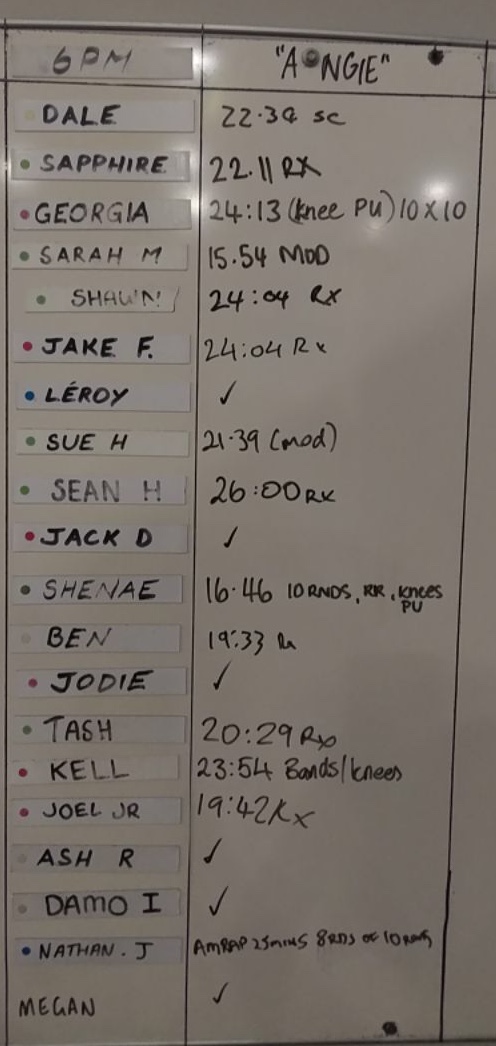 6PM "ANGIE"
DALE 22.39 sc
SAPPHIRE 22.11 RX
GEORGIA 24:13 (knee PU) 10X10
SARAH M 15.54 MOD
SHAWN 24:04 RX
JAKE F. 24:04 Rx
LÉROY ✓
SUE H 21.39 (mod)
SEAN H 26:00 RX
JACK D ✓
SHENAE 16.46 10 RNDS, RR, knees
PU
BEN 19:33
JODIE ✓
TASH 20:29 Rx
KELL 23:54 Bands/knees
JOEL JR 19:42 Rx
ASH R ✓
DAMO I ✓
NATHAN. J AMRAP 25mins 8RDS OF 10
MEGAN ✓